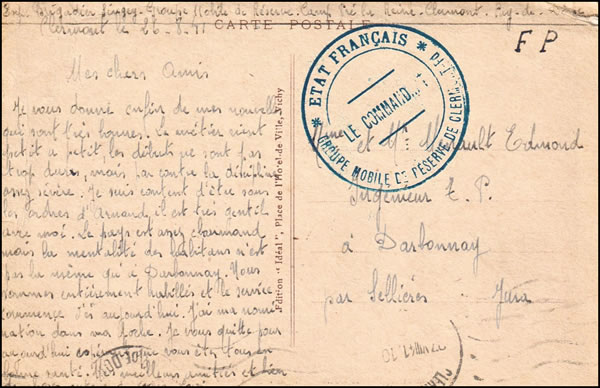 Groupe Mobile de Réserve. Camp
Clermont le 26.8.41
CARTE POSTALE
F P
Mes chers Amis
Je vous donne enfin de mes nouvelles
qui sont très bonnes. Le métier vient
petit a petit, les débuts ne sont pas
trop durs, mais par contre la discipline
assez sévère. Je suis content d'être sous
les ordres d'Armand, il est très gentil
avec moi. Le pays est assez charmand
mais la mentalité des habitans n'est
pas la même qu'a Darbonnay. Nous
sommes entièrement habillés et le service
commence dès aujourd'hui. J'ai ma nomi-
nation dans ma poche. Je vous quitte pour
aujourd'hui espérant que vous êtes tous en
bonne santé. Mes meilleurs amitiés et bien
Edition "Idéal", Place de l'Hotel-de-Ville, Vichy
* ETAT FRANÇAIS *
LE COMMANDANT
GROUPE MOBILE DE RÉSERVE DE
Mme et Mr Edmond
Ingénieur T. P.
à Darbonnay
par Sellières Jura